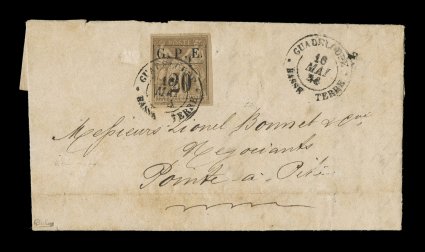 POSTE
G. P. E.
20
GUADELOUPE
16
MAI
BASSE TERRE
GUADELOUPE
16
MAI
84
BASSE TERRE
Messieurs Lionel Bonnet & Cie
Négociants
Pointe à Pitre